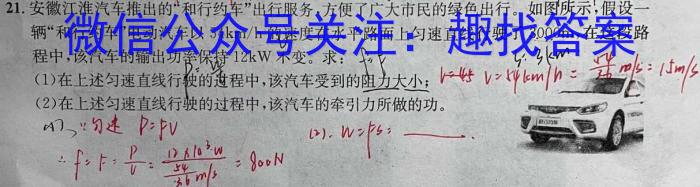 21. 安徽江淮汽车推出的“和行约车”出行服务,方便了广大市民的绿色出行。如图所示,假设一
辆“和行约车”电动汽车以 54km/h 的速度在水平路面上匀速直线行驶了3000m,在该段路
微信公众号关注：趣找答案
程中,该汽车的输出功率保持 12kW 不变。求:
(1)在上述匀速直线行驶的过程中,该汽车受到的阻力大小; v=54km/h = 54/3.6 m/s = 15m/s
(2)在上述匀速直线行驶的过程中,该汽车的牵引力所做的功。
(1)、∵匀速 P=FV (2)、W=FS=
∴ f=F= P/V = 12×10³W / 54/3.6 m/s = 800N